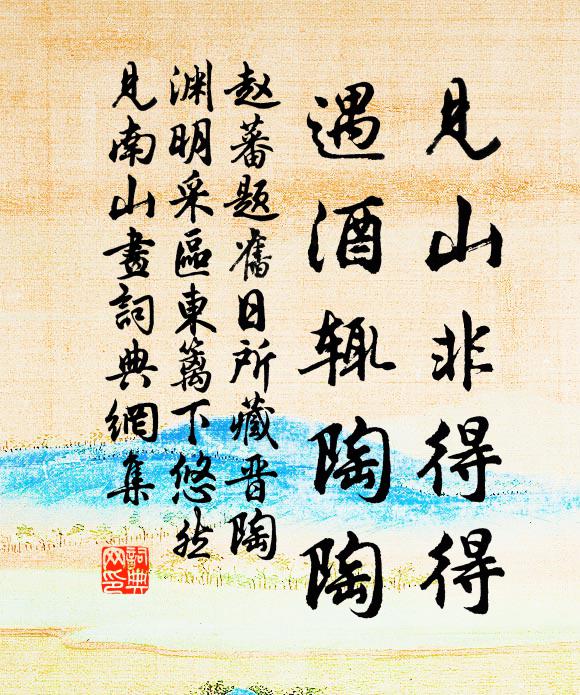 見山非得得
遇酒辄陶陶
赵蕃题舊日所藏晋陶
渊明采區東篱下悠然
見南山畫詞典網集
詞典
网印